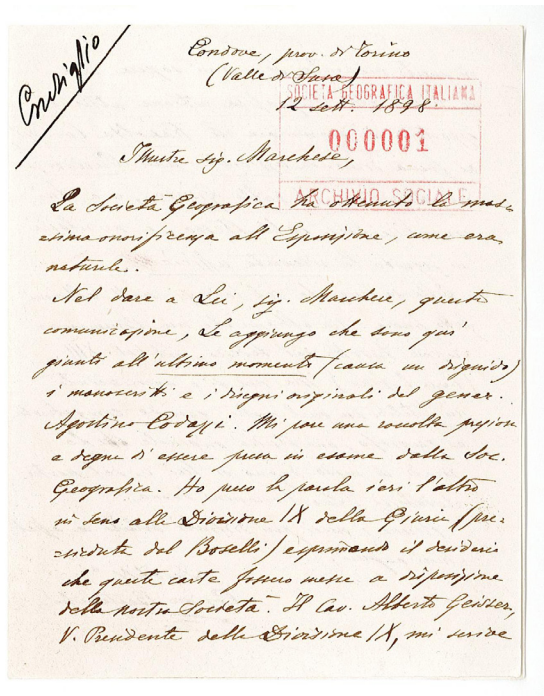 Consiglio
Condove, prov. di Torino
(Valle di Susa)
SOCIETÀ GEOGRAFICA ITALIANA
12 sett. 1898.
000001
Illustre sig. Marchese,
ARCHIVIO SOCIALE
La Società Geografica ha ottenuto la mas=
=sima onorificenza all'Esposizione, come era
naturale.
Nel dare a Lei, sig. Marchese, questa
comunicazione, Le aggiungo che sono qui
giunti all'ultimo momento (causa un disguido)
i manoscritti e i disegni originali del gener.
Agostino Codazzi. Mi pare una raccolta preziosa
e degna di essere presa in esame dalla Soc.
Geografica. Ho preso la parola ieri l'altro
in seno alla Divisione IX della Giuria (pre=
=sieduta dal Boselli) esprimendo il desiderio
che queste carte fossero messe a disposizione
della nostra Società. Il Cav. Alberto Geisser,
V. Presidente della Divisione IX, mi scrive